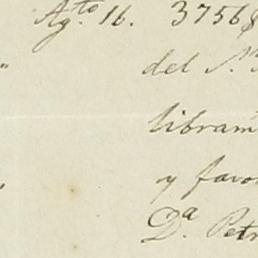 Ag.to 16. 3756$
" del
libram
y favo
" D.a Petr